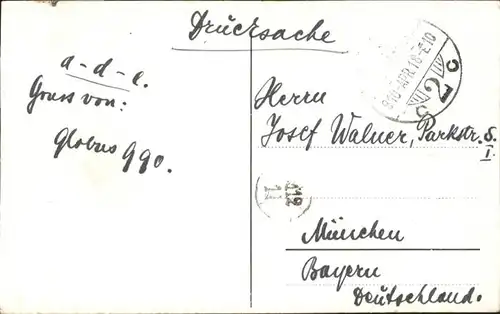 Drucksache
a-d-e.
Gruss von:
Globus 990.
Herrn
Josef Walner, Parkstr. 8.
I.
München
Bayern
Deutschland.